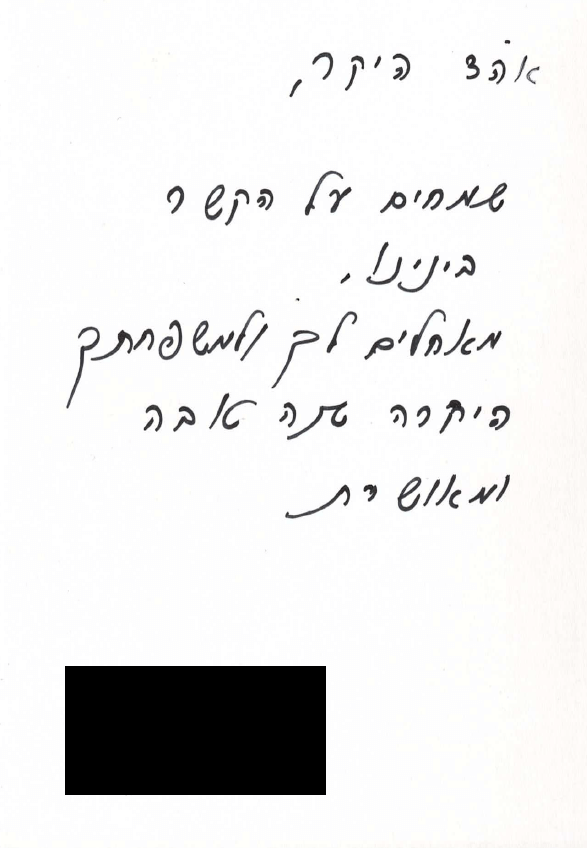 אוהד היקר,
שמחים על הקשר
בינינו.
מאחלים לך ולמשפחתך
היקרה שנה טובה
ומאושרת